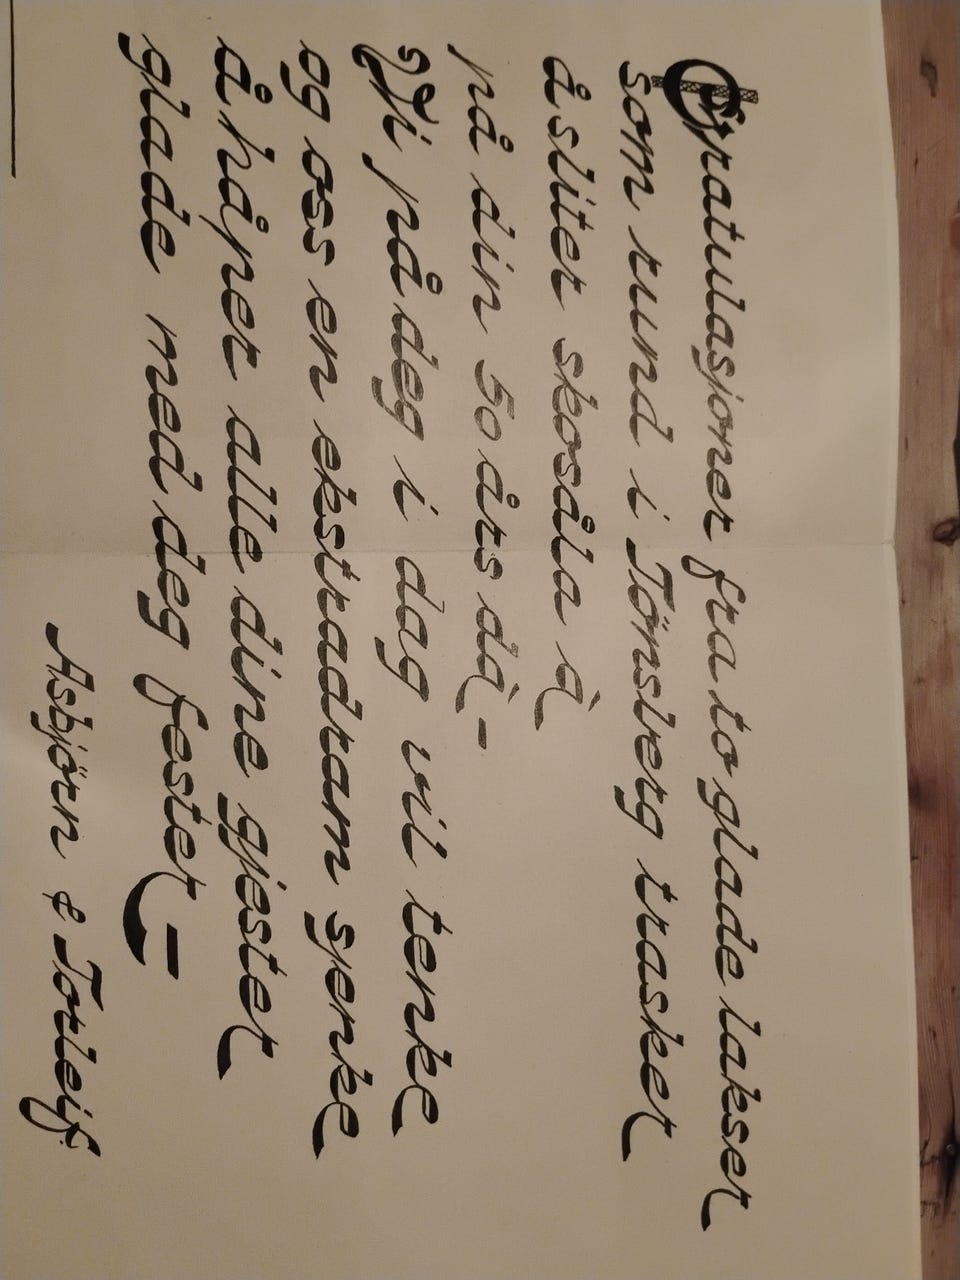 Gratulasjoner fra to glade lakser
som rund i Tønsberg trasker
å sliter skosåla å
på din 50 års da -
Vi på deg i dag vil tenke
og oss en ekstradram sjenke
å håper alle dine gjester
glade med deg fester -
Asbjörn & Torleif.